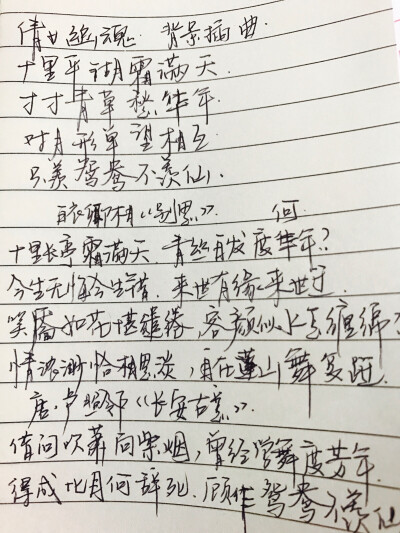 倩女幽魂 背景插曲
十里平湖霜满天.
寸寸青草愁华年.
对月形单望相互
只羡鸳鸯不羡仙.
白衣卿相《与思》. 何
十里长亭霜满天. 青丝白发度华年?
今生无悔今生错. 来世有缘来世迁.
笑靥如花堪缱绻, 容颜似水
情浓渐恰相思淡, 自在蓬山舞复跹.
唐.卢照邻《长安古意》.
借问吹箫向紫烟, 曾经学舞度芳年.
得成比目何辞死. 顾作鸳鸯不羡仙